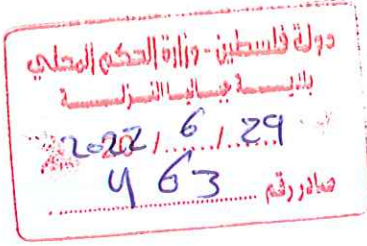 دولة فلسطين - وزارة الحكم المحلي
بلديـــة جباليـا النـزلـــة
2022 / 6 / 29
صادر رقم 463